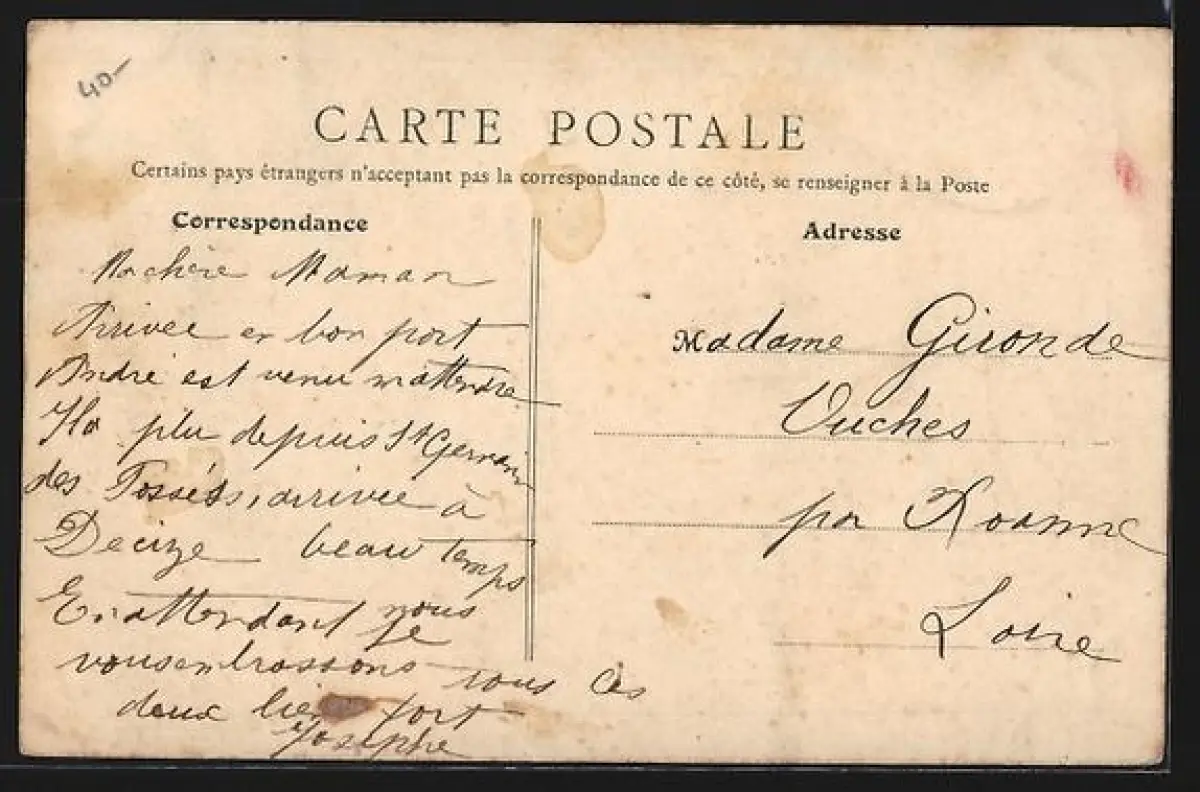 40-
CARTE POSTALE
Certains pays étrangers n'acceptant pas la correspondance de ce côté, se renseigner à la Poste
Correspondance
Ma chère Maman
Arrivée en bon port
André est venu m'attendre
Il a plu depuis St Germain
des Fossés, arrivée à
Decize beau temps
En attendant nous
vous embrassons tous les
deux bien fort
Josephe
Adresse
Madame Gironde
Ouches
par Roanne
Loire